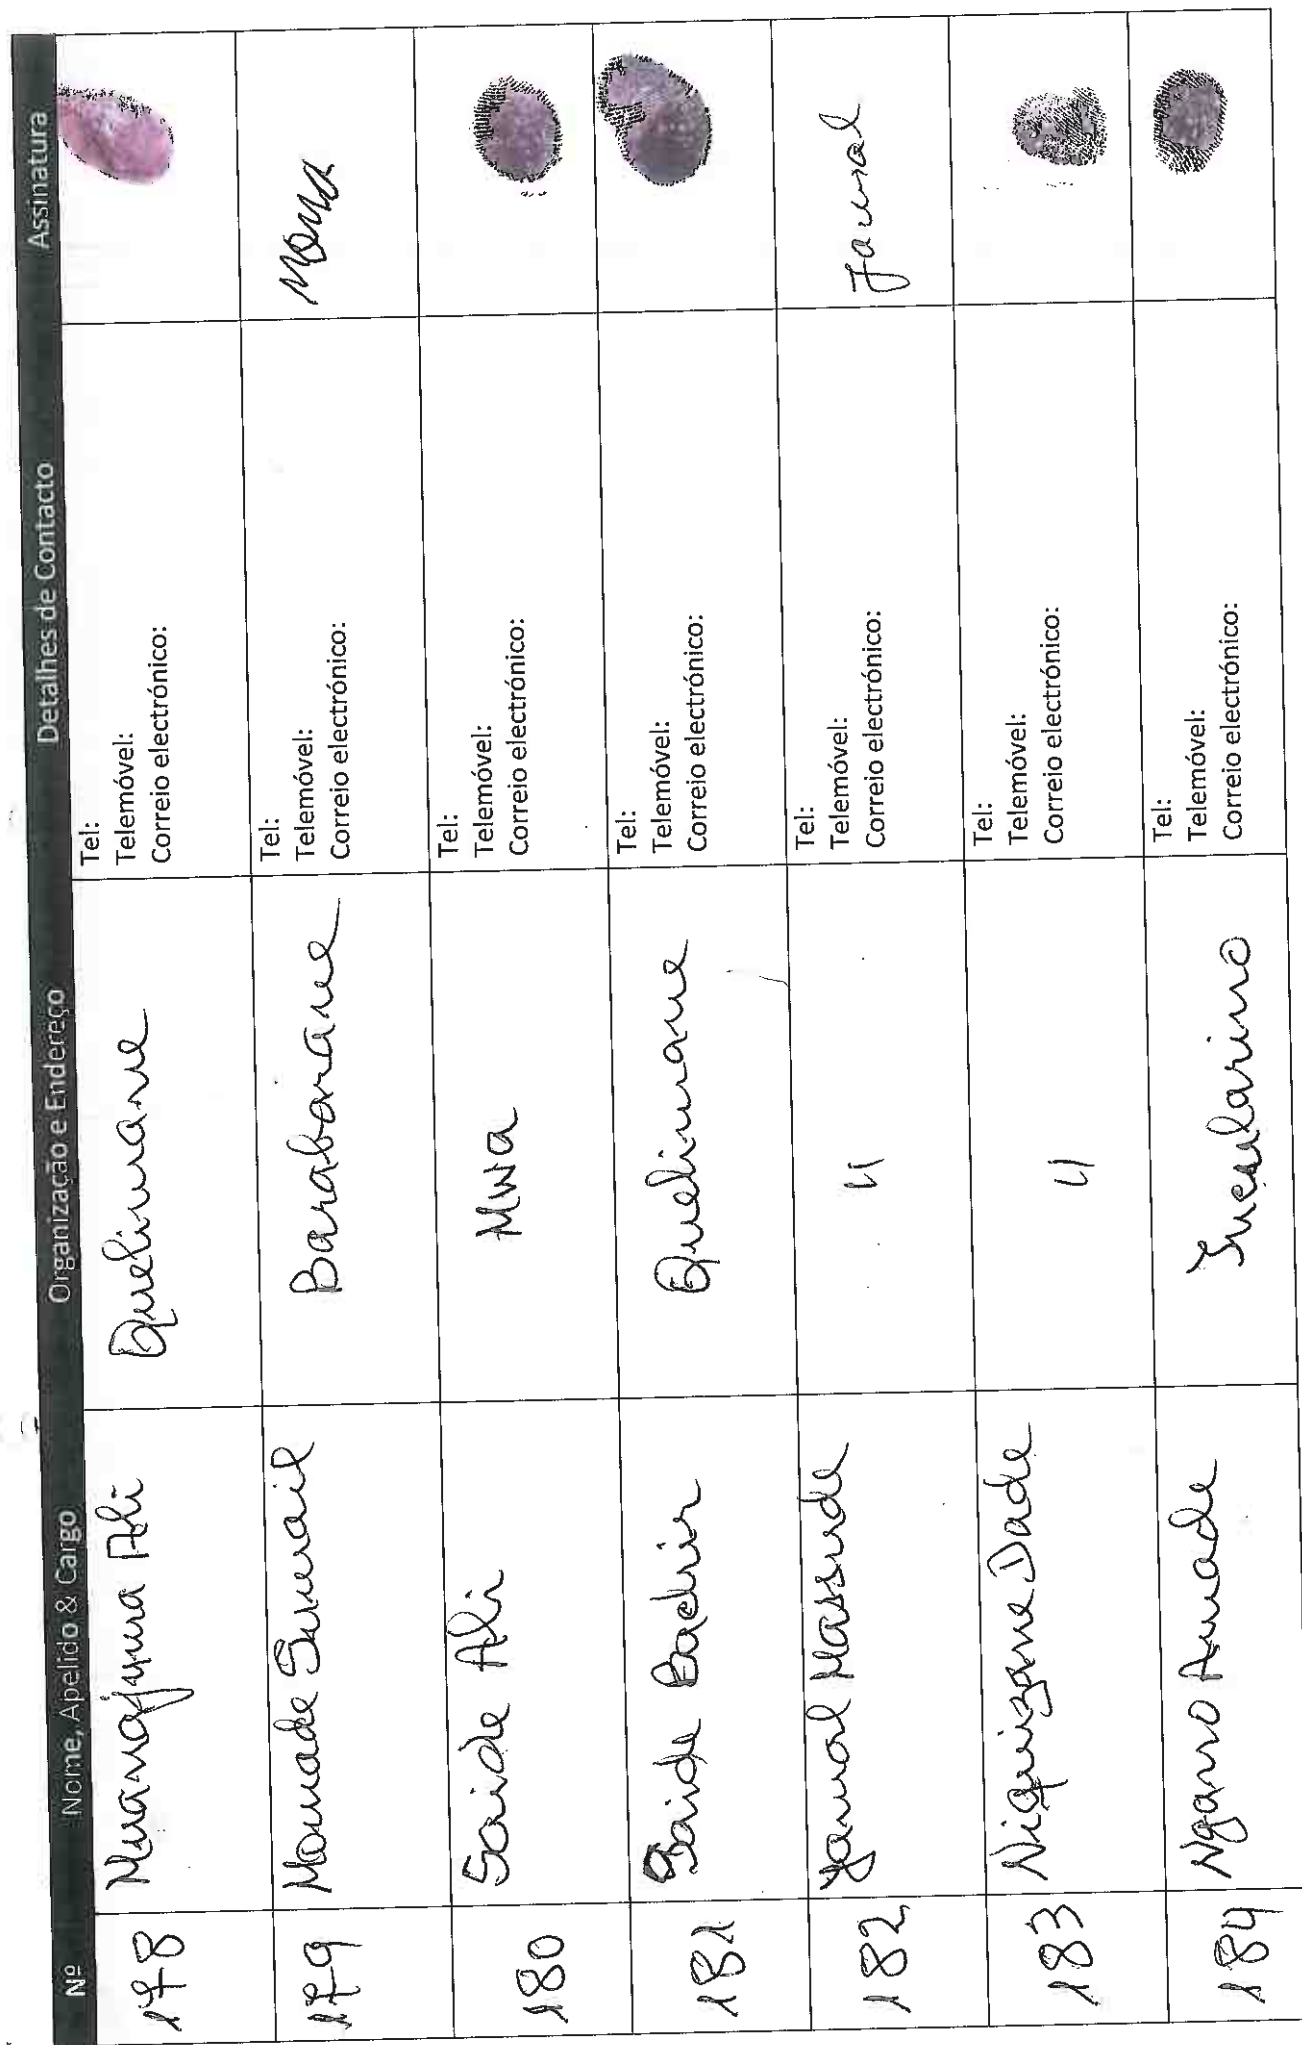 Nº Nome, Apelido & Cargo Organização e Endereço Detalhes de Contacto Assinatura
178 Muanajuma Ali Quelimane
Tel:
Telemóvel:
Correio electrónico:
179 Momade Sumail Barabarane
Tel:
Telemóvel:
Correio electrónico:
180 Saide Ali Mwa
Tel:
Telemóvel:
Correio electrónico:
181 Saide Badrir Quelimane
Tel:
Telemóvel:
Correio electrónico:
182 Jamal Massude 11 Jamal
Tel:
Telemóvel:
Correio electrónico:
183 Niquizane Dade 11
Tel:
Telemóvel:
Correio electrónico:
184 Ngamo Amade
Tel:
Telemóvel:
Correio electrónico: